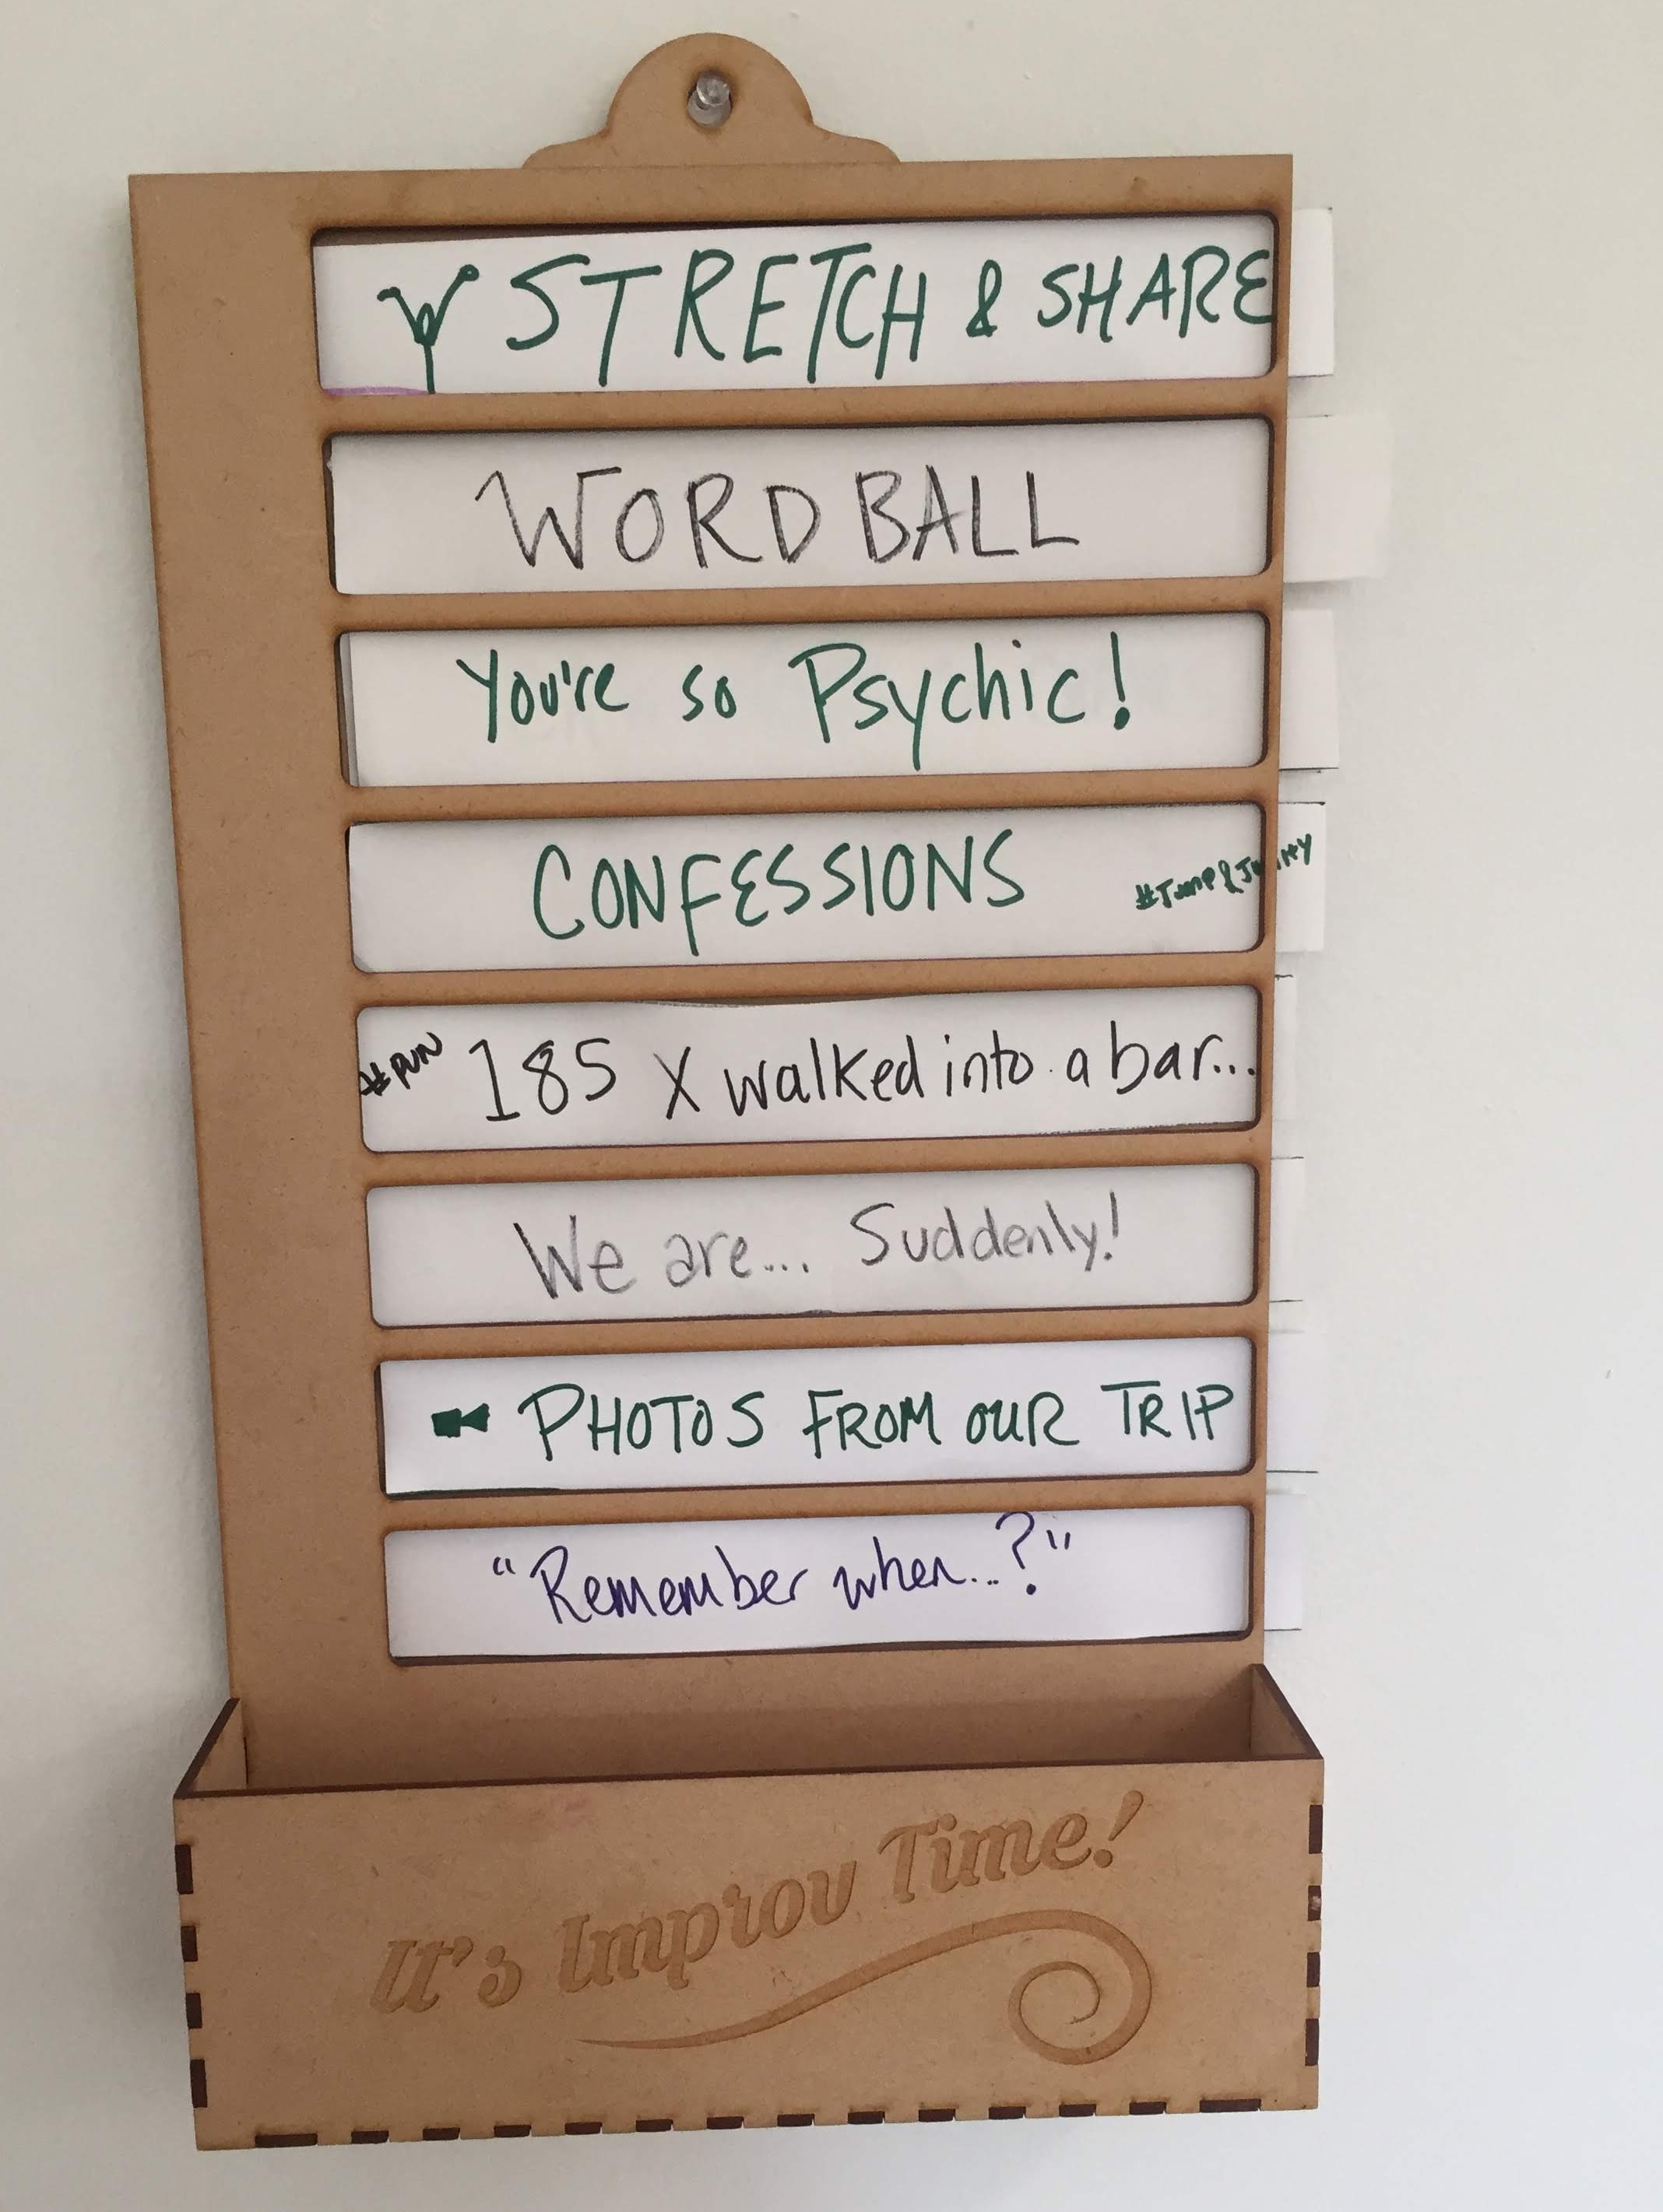 STRETCH & SHARE
WORD BALL
You're so Psychic!
CONFESSIONS
#PUN 185 X walked into a bar...
We are... Suddenly!
PHOTOS FROM OUR TRIP
"Remember when...?"
It's Improv Time!